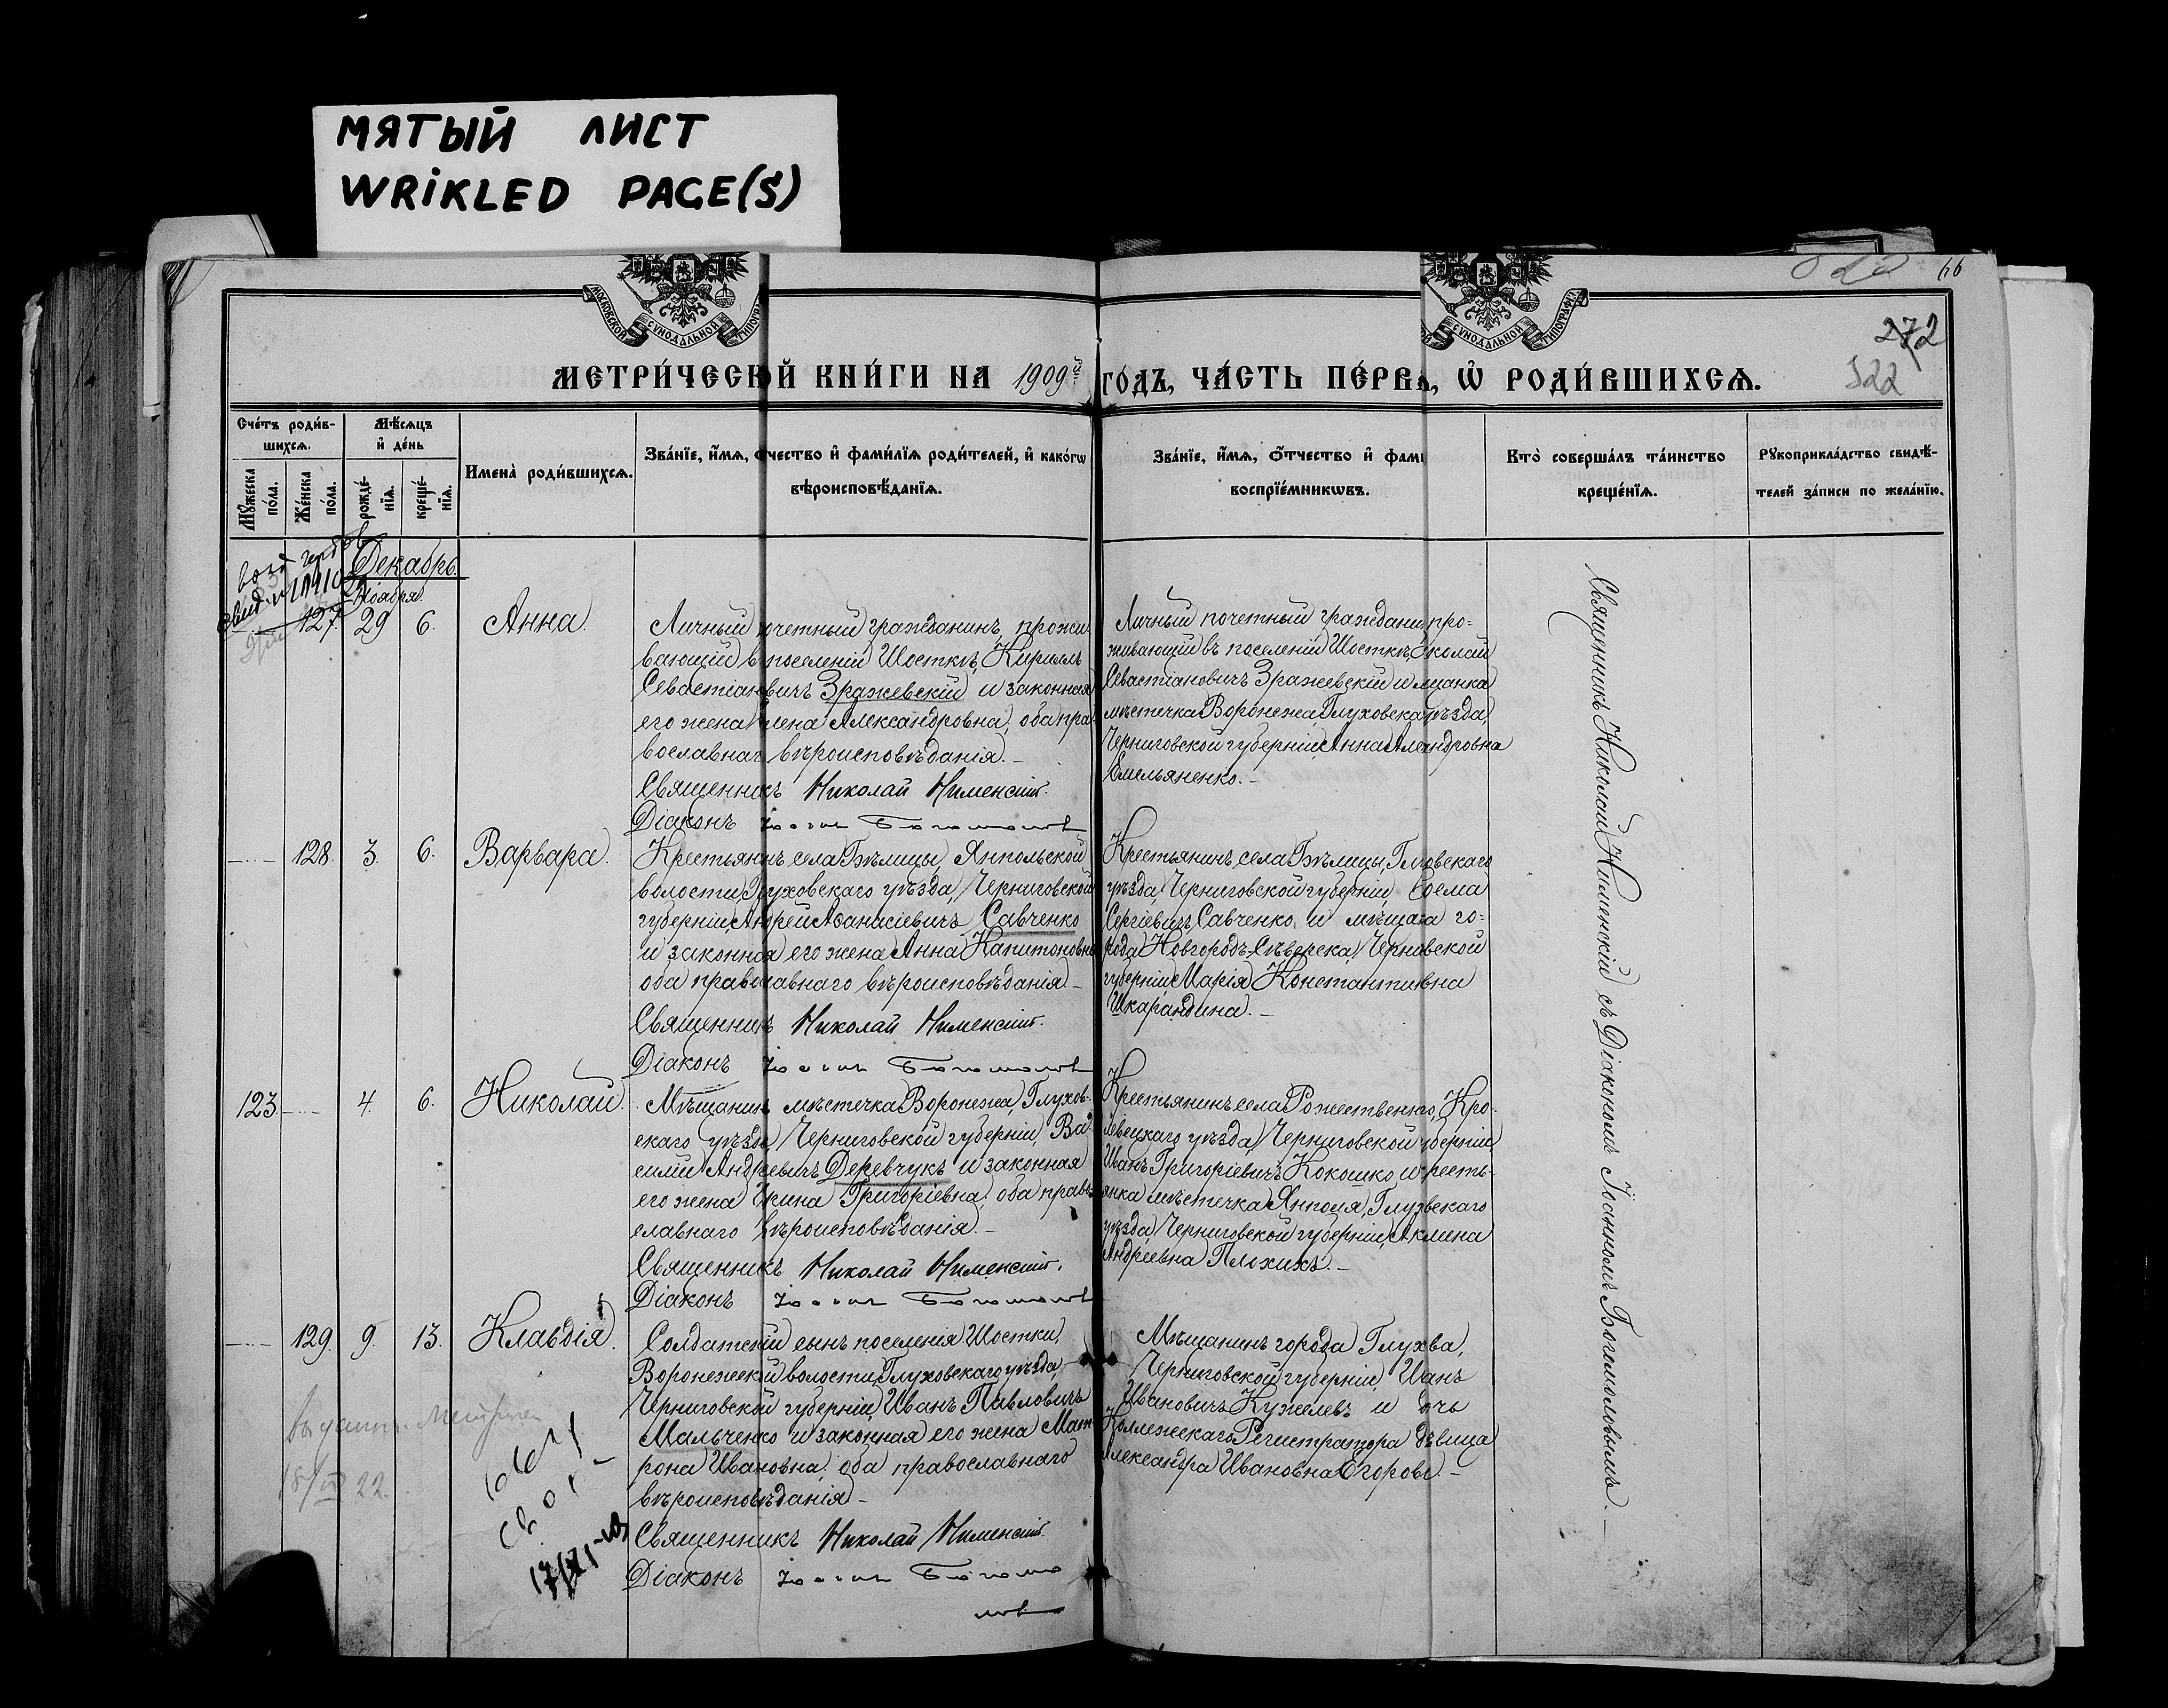 МЯТЫЙ ЛИСТ
WRIKLED PAGE(S)
66
МОСКОВСКОЙ СУНОДАЛЬНОЙ ТИПОГРА
СУНОДАЛЬНОЙ ТИПОГРАФІИ
272
322
МЕТРИ́ЧЕСКОЙ КНИ́ГИ НА 1909й
ГО́ДЪ, ЧА́СТЬ ПЕ́РВА, Ѡ РОДИ́ВШИХСѦ.
Сче́тъ роди́в-
шихсѧ.
Мѣ́сяцъ
и҆ де́нь
Мꙋ́жеска по́ла.
Же́нска по́ла.
рожде́-нїѧ.
креще́-нїѧ.
Имена̀ роди́вшихсѧ.
Зва́нїе, и҆́мѧ, ѻ҆́чество и҆ фами́лїѧ роди́телей, и҆ како́гѡ
вѣроисповѣ́данїѧ.
Зва́нїе, и҆́мѧ, ѻ҆́тчество и҆ фами
воспрїе́мникѡвъ.
Кто̀ соверша́лъ та́инство
креще́нїѧ.
Рꙋкоприкла́дство свидѣ́-
телей за́писи по жела́нїю.
Декабрь
Ноября
127. 29 6. Анна.
Личный почетный гражданинъ, прожи-
вающій въ поселеніи Шосткѣ, Кириллъ
Севастіановичъ Зражевскій и законная
его жена Елена Александровна, оба пра-
вославнаго вѣроисповѣданія.–
Священникъ Николай Нименскій.
Діаконъ
Личный почетный гражданин, про=
живающій въ поселеніи Шосткѣ, Николай
Севастіановичъ Зражевскій и мѣщанка
мѣстечка Воронежа, Глуховскаго уѣзда,
Черниговской губерніи, Анна Александровна
Емельяненко.–
128. 3. 6. Варвара.
Крестьянинъ села Бѣлицы, Янпольской
волости, Глуховскаго уѣзда, Черниговской
губерніи, Андрей Аѳанасіевичъ Савченко
и законная его жена Анна Капитоновна,
оба православнаго вѣроисповѣданія.–
Священникъ Николай Нименскій.
Діаконъ
Крестьянинъ села Бѣлицы, Глуховскаго
уѣзда, Черниговской губерніи, Ѳома
Сергіевичъ Савченко, и мѣщанка го=
рода Новгородъ-Сѣверска, Черниговской
губерніи, Марія Константиновна
Шкарандина.–
123. 4. 6. Николай.
Мѣщанинъ мѣстечка Воронежа, Глухов-
скаго уѣзда, Черниговской губерніи, Ва-
силій Андреевичъ Деревчукъ и законная
его жена Ирина Григоріевна, оба право-
славнаго вѣроисповѣданія.–
Священникъ Николай Нименскій.
Діаконъ
Крестьянинъ села Рождественского, Кро-
левецкаго уѣзда, Черниговской губерніи,
Иванъ Григоріевичъ Кокошко, и кресть-
янка мѣстечка Янполя, Глуховскаго
уѣзда, Черниговской губерніи,
Андреевна Плохихъ.–
129. 9. 13. Клавдія.
Солдатскій сынъ поселенія Шостки,
Воронежской волости, Глуховскаго уѣзда,
Черниговской губерніи, Иванъ Павловичъ
Мальченко и законная его жена Мат-
рона Ивановна, оба православнаго
вѣроисповѣданія.–
Священникъ Николай Нименскій.
Діаконъ
Мѣщанинъ города Глухова,
Черниговской губерніи, Иванъ
Ивановичъ Кужелевъ и дочь
Коллежскаго Регистратора дѣвица
Александра Ивановна Егорова.–
Священникъ Николай Нименскій съ Діакономъ Іоанномъ Богомоловымъ.–